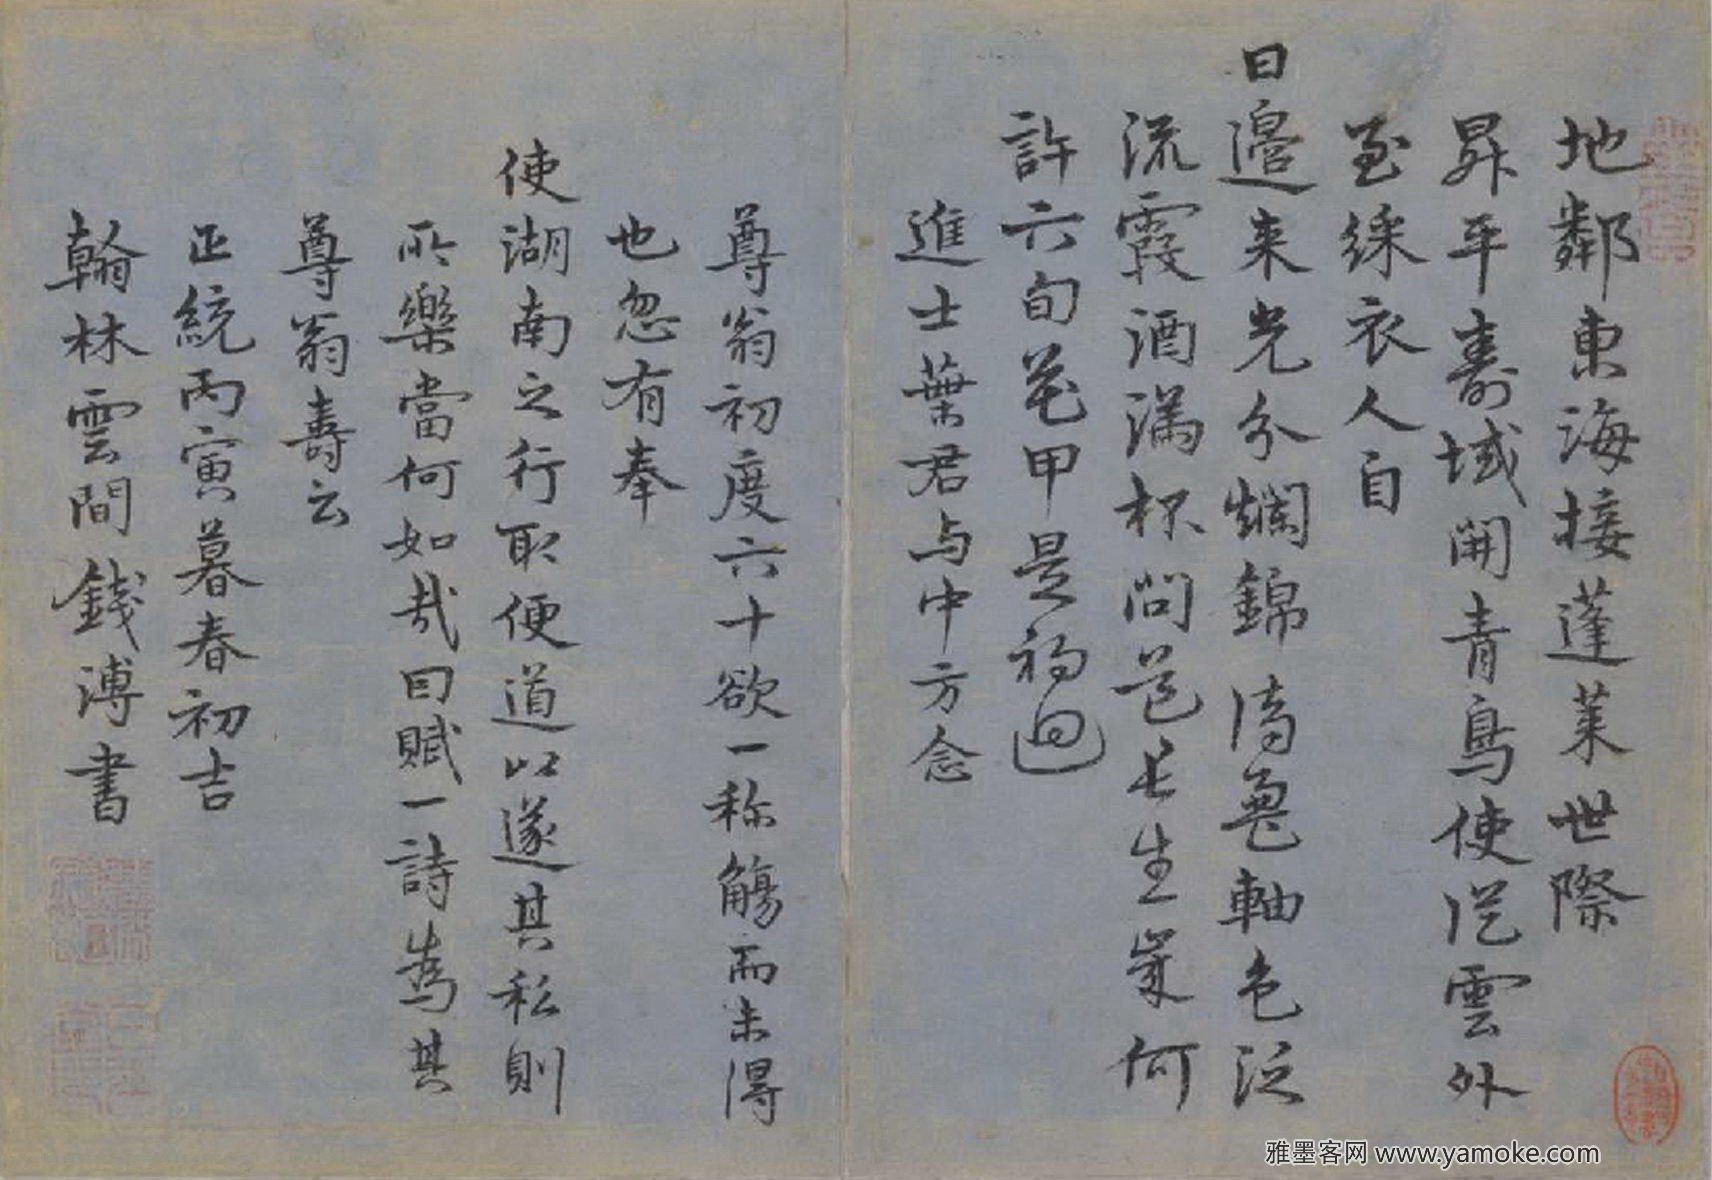 地鄰東海接蓬萊世際
昇平壽域開青鳥使從雲外
至綵衣人自
日邊来光分爛錦濤鳧軸色泛
流霞酒滿杯問道長生嵗何
許六旬花甲是初迴
進士葉君与中方念
尊翁初度六十欲一称觴而未得
也忽有奉
使湖南之行取便道以遂其私則
所樂當何如哉因賦一詩爲其
尊翁壽云
正統丙寅暮春初吉
翰林雲間錢溥書
雅墨客网 www.yamoke.com